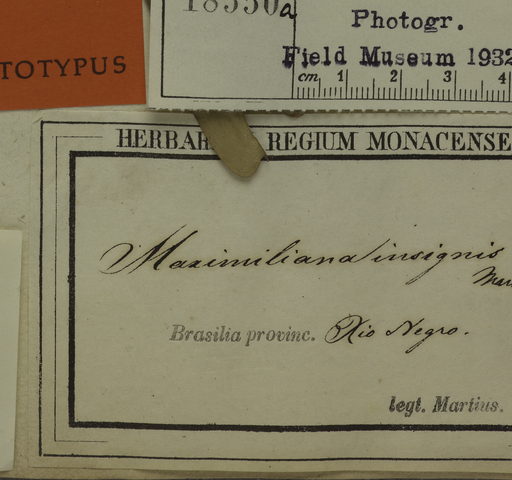 18550a
TOTYPUS
Photogr.
Field Museum 1932
cm 1 2 3 4
REGIUM MONACENSE
Maximiliana insignis
Mart
Brasilia provinc. Rio Negro.
legt. Martius.